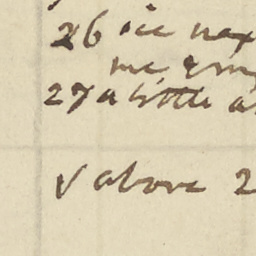 26 ice nex
me, & my
27 a little a
√ above 2